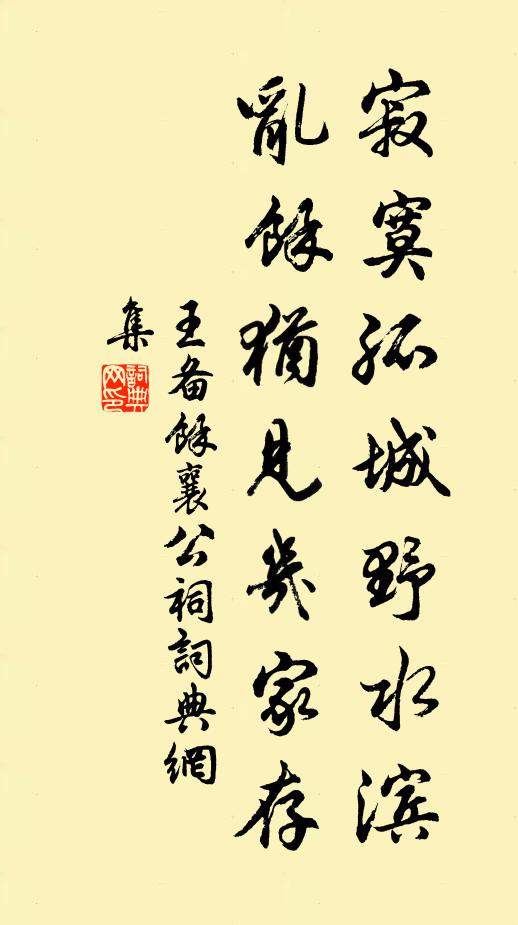 寂寞孤城野水滨
亂餘猶見幾家存
王备餘襄公祠詞典網
集
詞典
网印